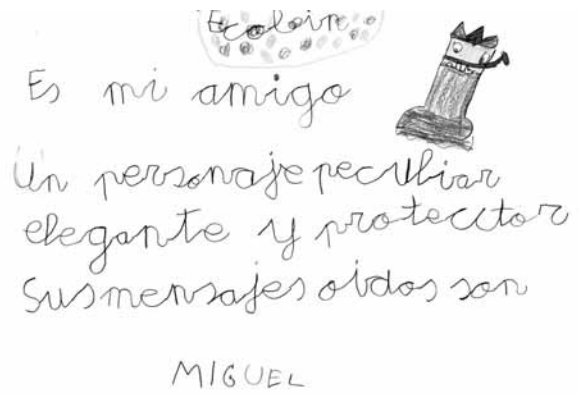 Ecoloin
Es mi amigo
Un personaje peculiar
elegante y protecctor
Sus mensajes oidos son
MIGUEL